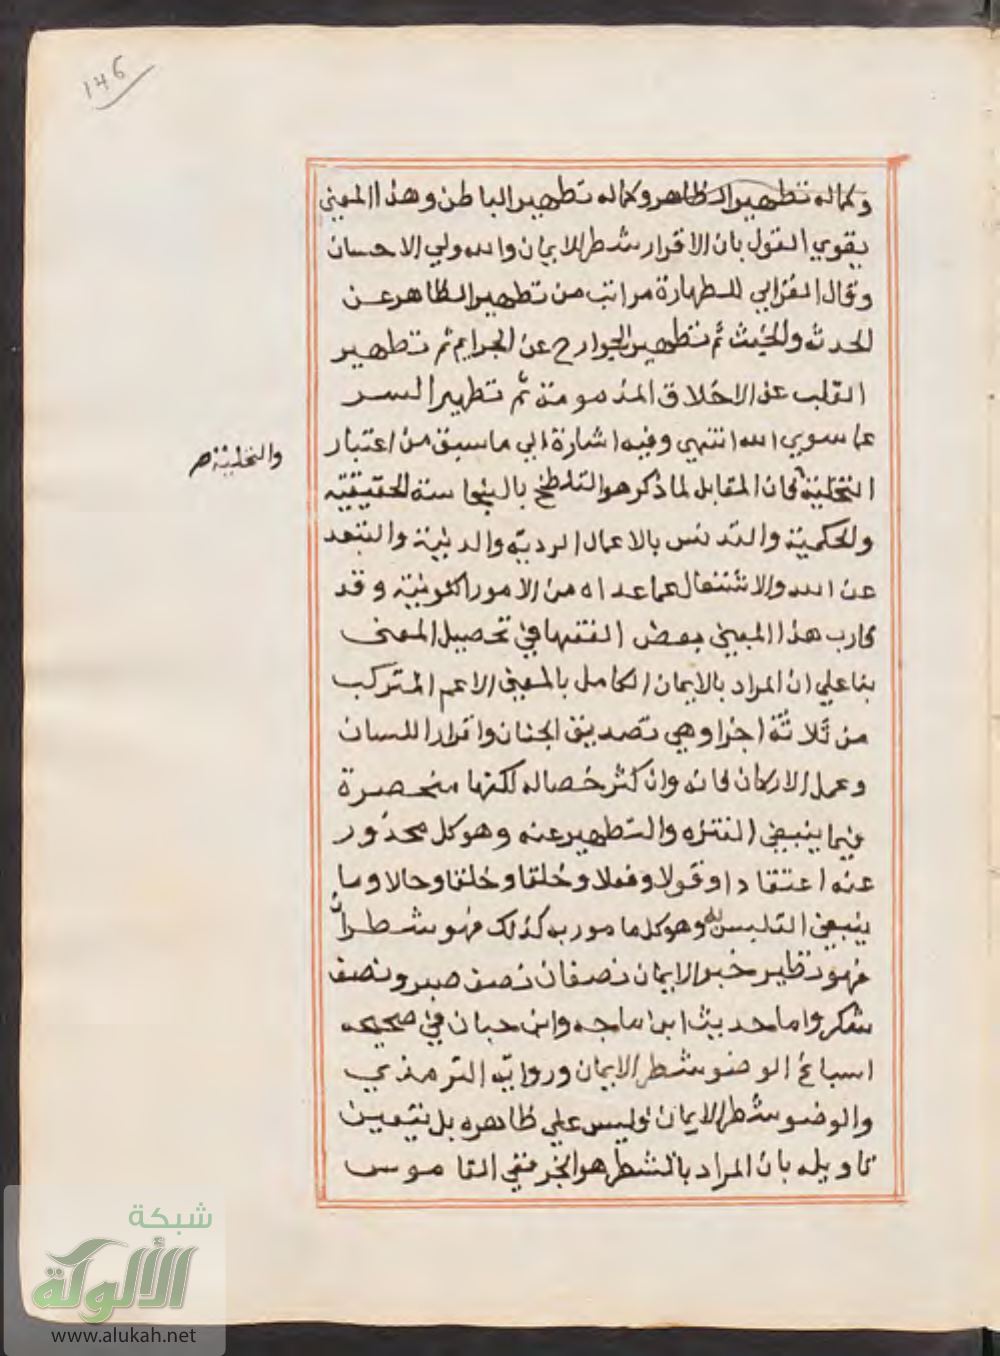 146
وكماله تطهير الظاهر وكماله تطهير الباطن وهذا المعنى
يقوي القول بان الاقرار شطر الايمان والله ولي الاحسان
وقال الغزالي للطهارة مراتب من تطهير الظاهر عن
الحدث والخبث ثم تطهير الجوارح عن الجرايم ثم تطهير
القلب عن الاخلاق المذمومة ثم تطهير السر
عما سوى الله انتهى وفيه اشارة الى ما سبق من اعتبار
التخلية فان المقابل لما ذكر هو التلطخ بالنجاسة الحقيقية
والحكمية والتدنس بالاعمال الردية والدنية والتبعد
عن الله والاشتغال عما عداه من الامور الكونية وقد
قارب هذا المعنى بعض الفقها في تحصيل المعنى
بنا على ان المراد بالايمان الكامل بالمعنى الاعم المتركب
من ثلاثة اجزا وهي تصديق الجنان واقرار اللسان
وعمل الاركان فانه وان كثر خصاله لكنها منحصرة
فيما ينبغي التنزه والتطهير عنه وهو كل محذور
عنه اعتقادا وقولا وفعلا وخلقا وخلقا وحالا وما
ينبغي التلبس به وهو كل مامور به كذلك فهو شطران
فهو نظير خبر الايمان نصفان نصف صبر ونصف
شكر واما حديث ابن ماجه وابن حبان في صحيحه
اسباغ الوضو شطر الايمان ورواية الترمذي
والوضو شطر الايمان وليس على ظاهره بل يتعين
تاويله بان المراد بالشطر هو الجز ففي القاموس
والتحلية صح
شبكة
الألوكة
www.alukah.net